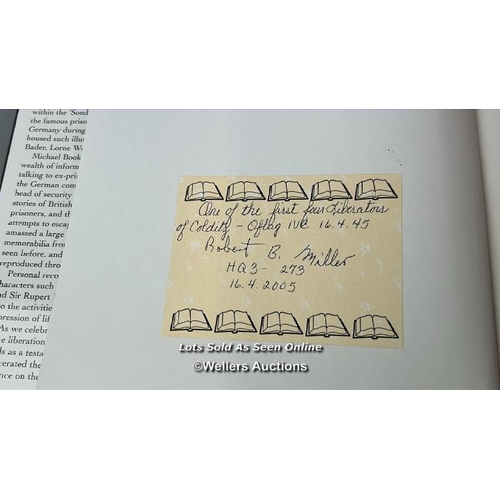 within the 'Sond
the famous priso
Germany during
housed such illus
Bader, Lorne We
Michael Book
wealth of inform
talking to ex-pri
the German com
head of security
stories of British
prisoners, and th
attempts to escap
amassed a large
memorabilia from
seen before, and
reproduced thro
Personal reco
haracters such
nd Sir Rupert
to the activitie
pression of lif
As we celebr
e liberation
ls as a testa
cerated the
nce on the
One of the first four Liberators
of Colditz - Oflag IVC 16.4.45
Robert B. Miller
HQ3 - 273
16.4.2005
Lots Sold As Seen Online
©Wellers Auctions